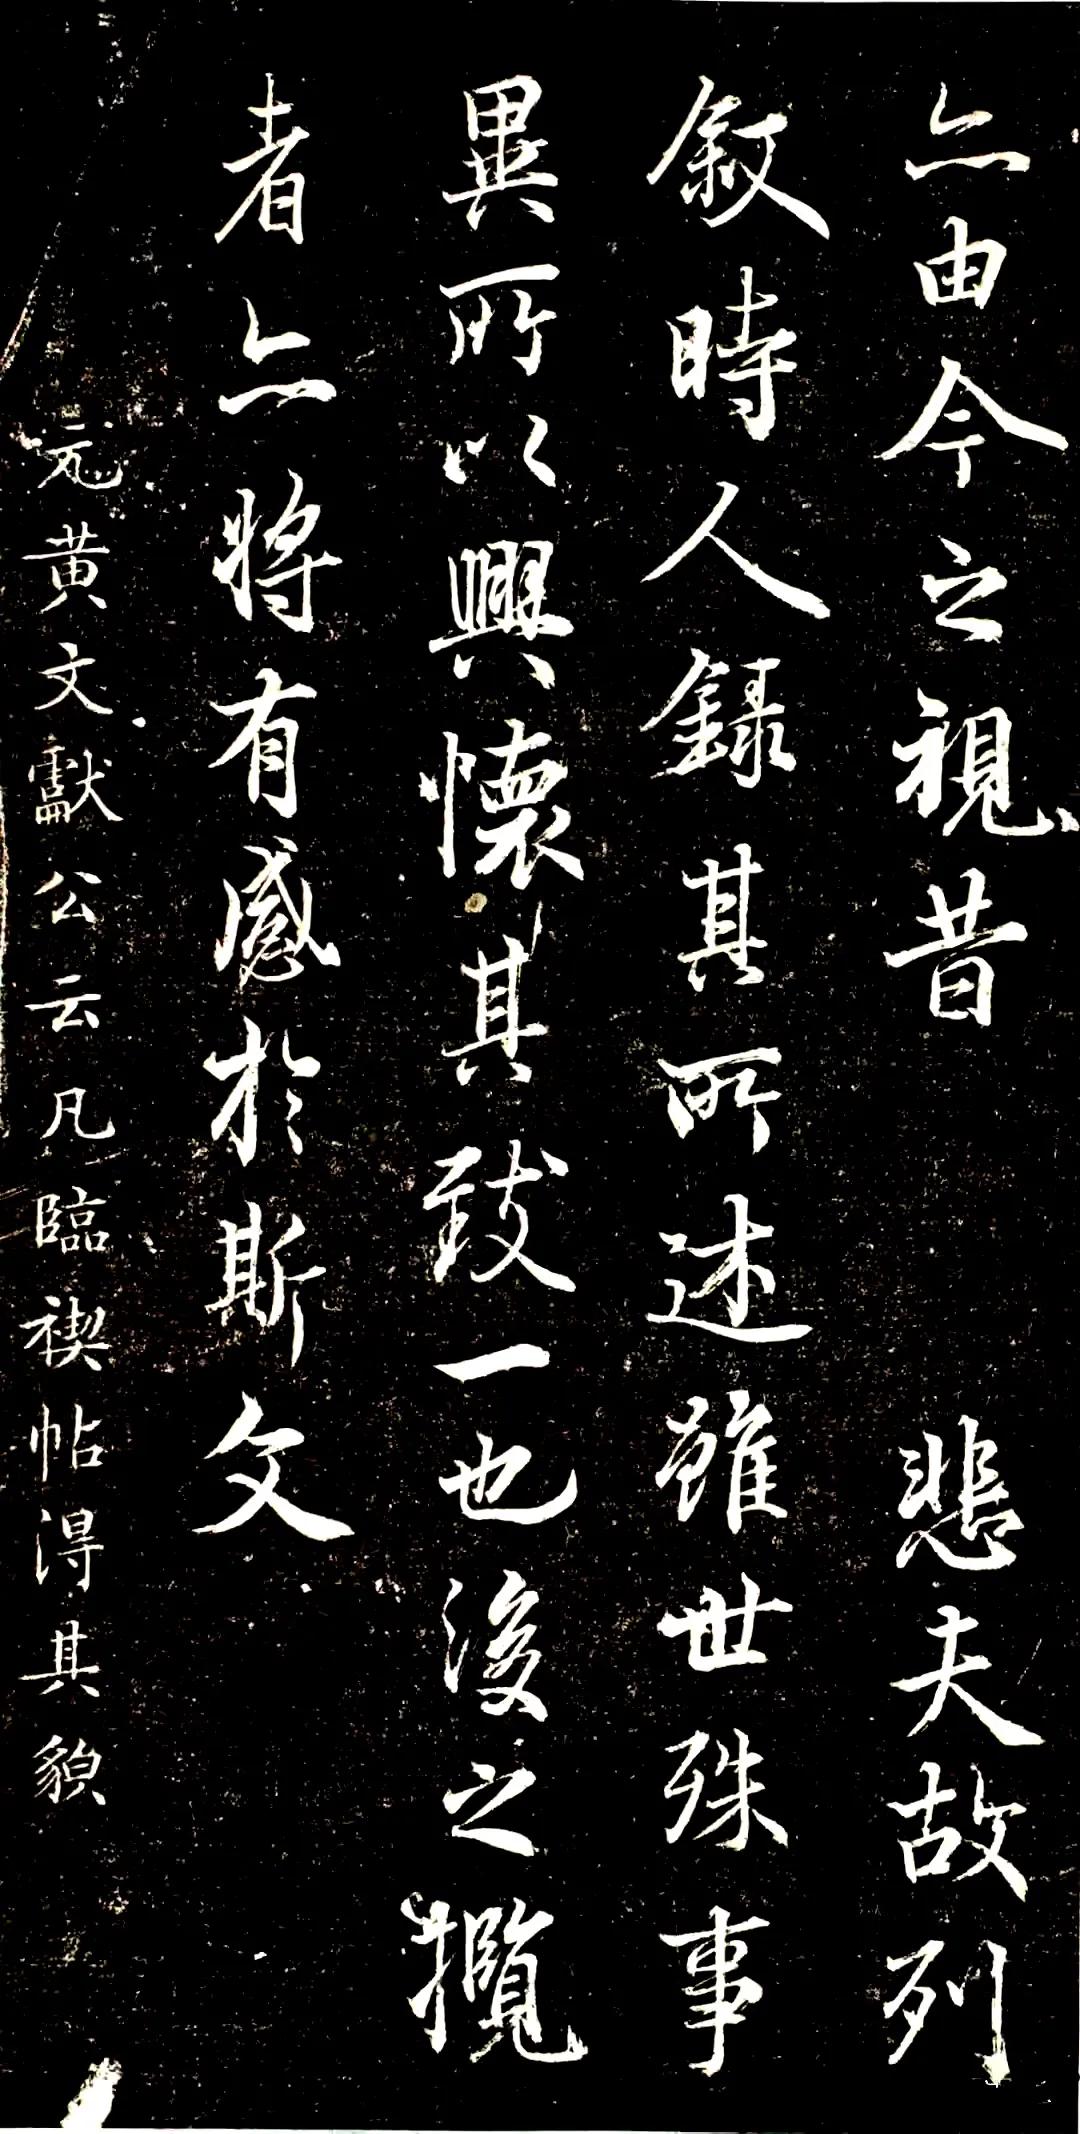 亦由今之視昔 悲夫故列
叙時人錄其所述雖世殊事
異所以興懷其致一也後之攬
者亦将有感於斯文
元黄文獻公云凡臨禊帖得其貌